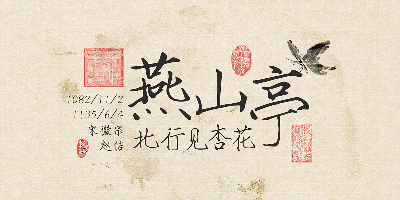 燕山亭
北行见杏花
1082/11/2
1135/6/4
宋徽宗
赵佶